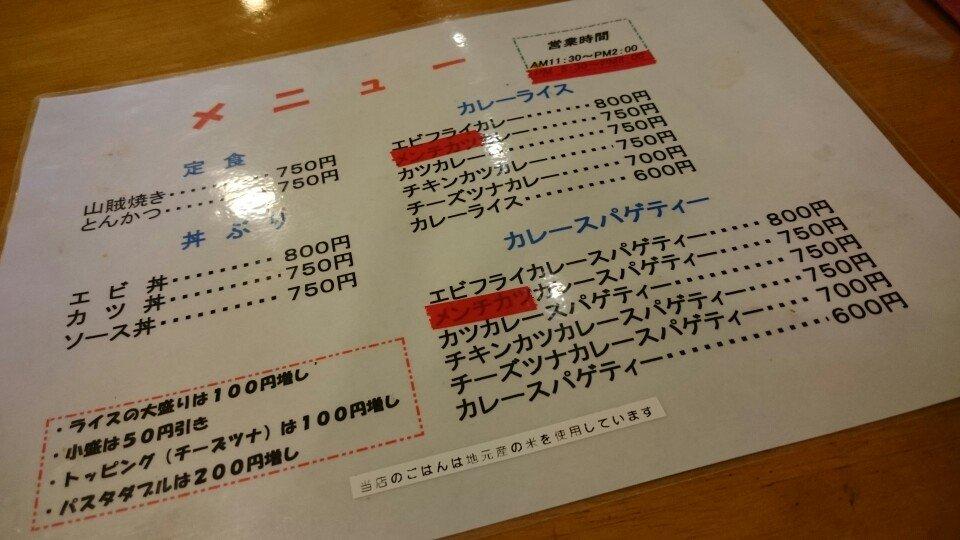 メニュー
営業時間
AM11:30～PM2:00
定食
山賊焼き・・・・・・・・・・750円
とんかつ・・・・・・・・・・750円
丼ぶり
エビ丼・・・・・・・・・・800円
カツ丼・・・・・・・・・・750円
ソース丼・・・・・・・・・・750円
・ライスの大盛りは１００円増し
・小盛は５０円引き
・トッピング（チーズツナ）は１００円増し
・パスタダブルは２００円増し
カレーライス
エビフライカレー・・・・・・・・800円
メンチカツカレー・・・・・・・・750円
カツカレー・・・・・・・・・・750円
チキンカツカレー・・・・・・・・750円
チーズツナカレー・・・・・・・・700円
カレーライス・・・・・・・・・・600円
カレースパゲティー
エビフライカレースパゲティー・・・・・・800円
メンチカツカレースパゲティー・・・・・・750円
カツカレースパゲティー・・・・・・・・750円
チキンカツカレースパゲティー・・・・・・750円
チーズツナカレースパゲティー・・・・・・700円
カレースパゲティー・・・・・・・・・・600円
当店のごはんは地元産の米を使用しています